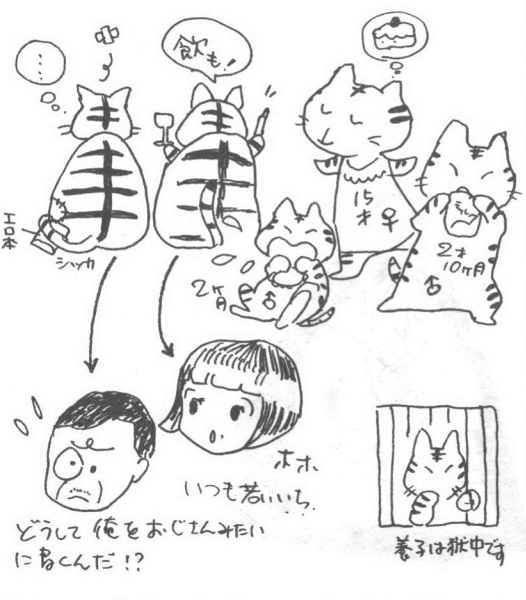 ・・・・
飲も!
エロ本
シッカ
2ヶ月
15才♀
2才
10ヶ月
♂
ホホ
いつも若いいち.
どうして俺をおじさんみたい
に書くんだ!?
養子は獄中です